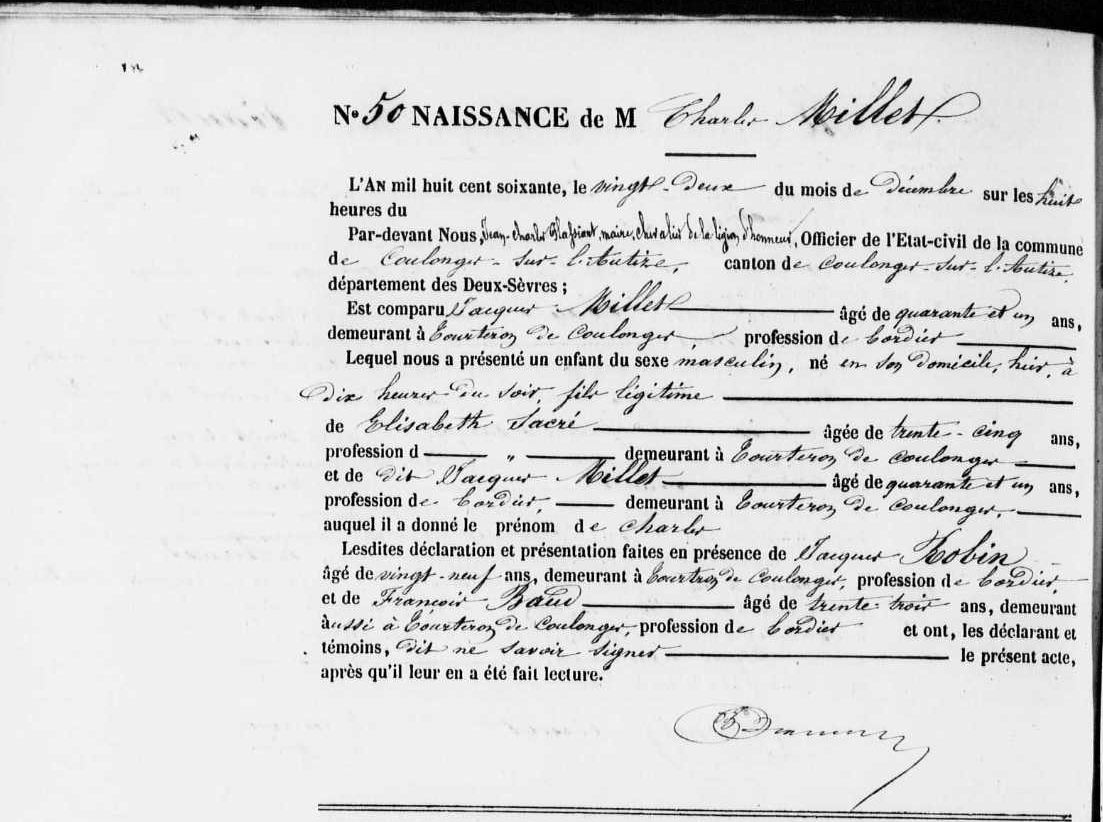 N° 50 NAISSANCE de M Charles Millet
L'AN mil huit cent soixante, le vingt-deux du mois de Décembre sur les huit
heures du
Par-devant Nous, Jean-Charles maire, chevalier de la légion d'honneur, Officier de l'Etat-civil de la commune
de Coulonges-sur-l'Autize, canton de Coulonges-sur-l'Autize,
département des Deux-Sèvres ;
Est comparu Jacques Millet âgé de quarante et un ans,
demeurant à Tourteron de Coulonges profession de Cordier
Lequel nous a présenté un enfant du sexe masculin, né en son domicile, hier, à
dix heures du soir, fils légitime
de Elisabeth Sacré âgée de trente-cinq ans,
profession d " demeurant à Tourteron de Coulonges
et de dit Jacques Millet âgé de quarante et un ans,
profession de Cordier, demeurant à Tourteron de Coulonges,
auquel il a donné le prénom de Charles
Lesdites déclaration et présentation faites en présence de Jacques Robin
âgé de vingt-neuf ans, demeurant à Tourtron de Coulonges, profession de Cordier,
et de François Baud âgé de trente trois ans, demeurant
aussi à Tourteron de Coulonges, profession de Cordier et ont, les déclarant et
témoins, dit ne savoir signer le présent acte,
après qu'il leur en a été fait lecture.